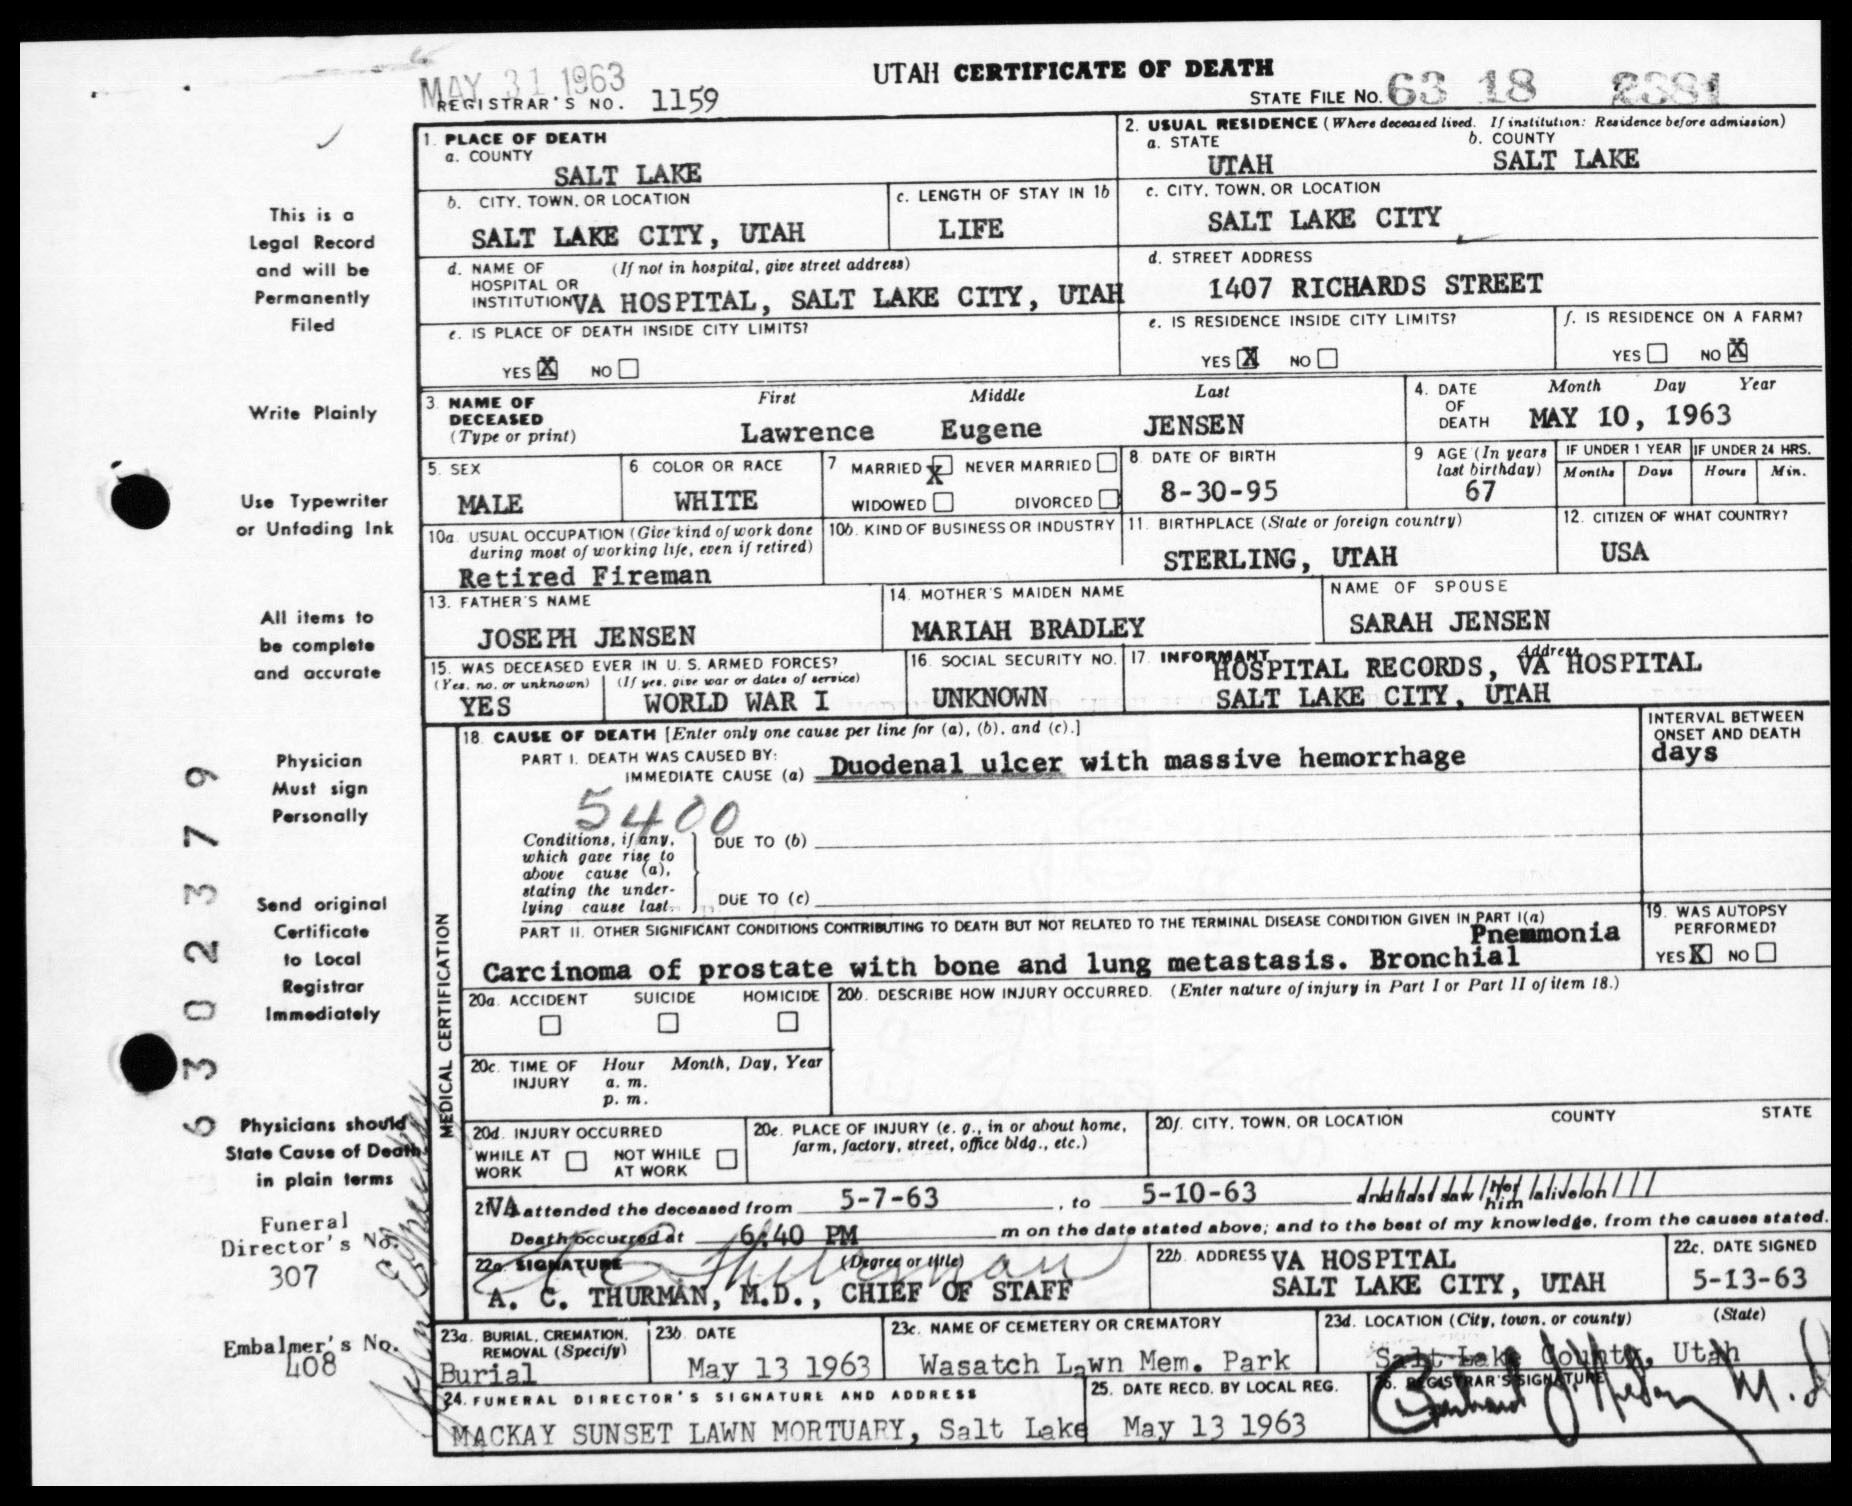 MAY 31 1963
UTAH CERTIFICATE OF DEATH
REGISTRAR'S NO. 1159
STATE FILE NO. 63 18 2381
1. PLACE OF DEATH
a. COUNTY
SALT LAKE
2. USUAL RESIDENCE (Where deceased lived. If institution: Residence before admission)
a. STATE b. COUNTY
UTAH SALT LAKE
b. CITY, TOWN, OR LOCATION
SALT LAKE CITY, UTAH
c. LENGTH OF STAY IN 1b
LIFE
c. CITY, TOWN, OR LOCATION
SALT LAKE CITY
d. NAME OF (If not in hospital, give street address)
HOSPITAL OR
INSTITUTION VA HOSPITAL, SALT LAKE CITY, UTAH
d. STREET ADDRESS
1407 RICHARDS STREET
e. IS PLACE OF DEATH INSIDE CITY LIMITS?
YES X NO
e. IS RESIDENCE INSIDE CITY LIMITS?
YES X NO
f. IS RESIDENCE ON A FARM?
YES NO X
3. NAME OF First Middle Last
DECEASED
(Type or print) Lawrence Eugene JENSEN
4. DATE Month Day Year
OF
DEATH MAY 10, 1963
5. SEX
MALE
6. COLOR OR RACE
WHITE
7. MARRIED X NEVER MARRIED
WIDOWED DIVORCED
8. DATE OF BIRTH
8-30-95
9. AGE (In years
last birthday)
67
IF UNDER 1 YEAR IF UNDER 24 HRS.
Months Days Hours Min.
10a. USUAL OCCUPATION (Give kind of work done
during most of working life, even if retired)
Retired Fireman
10b. KIND OF BUSINESS OR INDUSTRY
11. BIRTHPLACE (State or foreign country)
STERLING, UTAH
12. CITIZEN OF WHAT COUNTRY?
USA
13. FATHER'S NAME
JOSEPH JENSEN
14. MOTHER'S MAIDEN NAME
MARIAH BRADLEY
NAME OF SPOUSE
SARAH JENSEN
15. WAS DECEASED EVER IN U. S. ARMED FORCES?
(Yes, no, or unknown) (If yes, give war or dates of service)
YES WORLD WAR I
16. SOCIAL SECURITY NO.
UNKNOWN
17. INFORMANT Address
HOSPITAL RECORDS, VA HOSPITAL
SALT LAKE CITY, UTAH
MEDICAL CERTIFICATION
18. CAUSE OF DEATH [Enter only one cause per line for (a), (b), and (c).]
PART I. DEATH WAS CAUSED BY:
IMMEDIATE CAUSE (a) Duodenal ulcer with massive hemorrhage
INTERVAL BETWEEN
ONSET AND DEATH
days
5400
Conditions, if any,
which gave rise to
above cause (a),
stating the under-
lying cause last.
DUE TO (b)
DUE TO (c)
PART II. OTHER SIGNIFICANT CONDITIONS CONTRIBUTING TO DEATH BUT NOT RELATED TO THE TERMINAL DISEASE CONDITION GIVEN IN PART I(a)
Pnemmonia
Carcinoma of prostate with bone and lung metastasis. Bronchial
19. WAS AUTOPSY
PERFORMED?
YES X NO
20a. ACCIDENT SUICIDE HOMICIDE
20b. DESCRIBE HOW INJURY OCCURRED. (Enter nature of injury in Part I or Part II of item 18.)
20c. TIME OF Hour Month, Day, Year
INJURY a. m.
p. m.
20d. INJURY OCCURRED
WHILE AT NOT WHILE
WORK AT WORK
20e. PLACE OF INJURY (e. g., in or about home,
farm, factory, street, office bldg., etc.)
20f. CITY, TOWN, OR LOCATION COUNTY STATE
21. VA attended the deceased from 5-7-63, to 5-10-63 and last saw her him alive on
Death occurred at 6:40 PM m on the date stated above; and to the best of my knowledge, from the causes stated.
22a. SIGNATURE (Degree or title)
A C Thurman
A. C. THURMAN, M.D., CHIEF OF STAFF
22b. ADDRESS VA HOSPITAL
SALT LAKE CITY, UTAH
22c. DATE SIGNED
5-13-63
23a. BURIAL, CREMATION,
REMOVAL (Specify)
Burial
23b. DATE
May 13 1963
23c. NAME OF CEMETERY OR CREMATORY
Wasatch Lawn Mem. Park
23d. LOCATION (City, town, or county) (State)
Salt Lake County, Utah
24. FUNERAL DIRECTOR'S SIGNATURE AND ADDRESS
MACKAY SUNSET LAWN MORTUARY, Salt Lake
25. DATE RECD. BY LOCAL REG.
May 13 1963
26. REGISTRAR'S SIGNATURE
This is a
Legal Record
and will be
Permanently
Filed
Write Plainly
Use Typewriter
or Unfading Ink
All items to
be complete
and accurate
Physician
Must sign
Personally
Send original
Certificate
to Local
Registrar
Immediately
Physicians should
State Cause of Death
in plain terms
Funeral
Director's No.
307
Embalmer's No.
408
63 02379